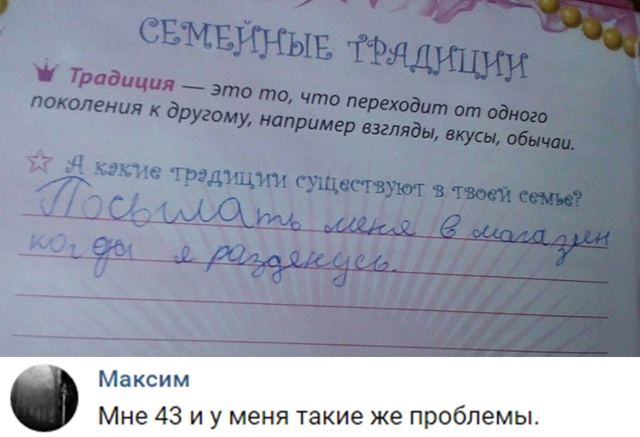 СЕМЕЙНЫЕ ТРАДИЦИИ
Традиция — это то, что переходит от одного
поколения к другому, например взгляды, вкусы, обычаи.
А какие традиции существуют в твоей семье?
Посылать меня в магазин
когды я разденусь.
Максим
Мне 43 и у меня такие же проблемы.